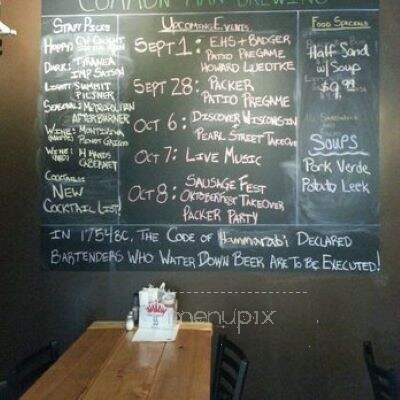 COMMON MAN BREWING
STAFF PICKS
HOPPY:
DARK: TYRANEA
IMP STAISON
LIGHT: SUMMIT
PILSNER
SEASONAL: METROPOLITAN
AFTERBURNER
WINE:
PINOT GRIGIO
WINE:
(RED)
CABERNET
COCKTAILS:
NEW
COCKTAIL LIST!
UPCOMING EVENTS
SEPT 1: EHS + BADGER
PATIO PREGAME
HOWARD LUEDTKE
SEPT 28: PACKER
PATIO PREGAME
OCT 6: DISCOVER WISCONSIN
PEARL STREET TAKEOVER
OCT 7: LIVE MUSIC
OCT 8: SAUSAGE FEST
OKTOBERFEST TAKEOVER
PACKER PARTY
FOOD SPECIALS
Half Sand
w/ Soup
$9.99
SOUPS
Pork Verde
Potato Leek
IN 1754BC, THE CODE OF Hammurabi DECLARED
BARTENDERS WHO WATER DOWN BEER ARE TO BE EXECUTED!
menupix